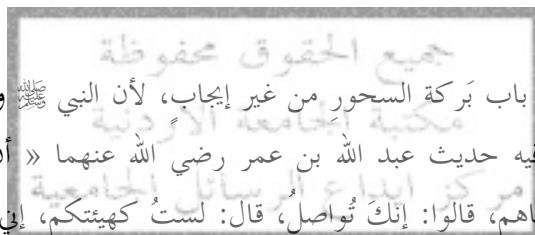 جميع الحقوق محفوظة
باب بَركة السحورِ من غير إيجابٍ، لأن النبي ﷺ و
مكتبة الجامعة الأردنية
فيه حديث عبد الله بن عمر رضي الله عنهما «
مركز ايداع الرسائل الجامعية
اهم، قالوا: إنكَ تُواصلُ، قال: لستُ كهيئتكم، إني